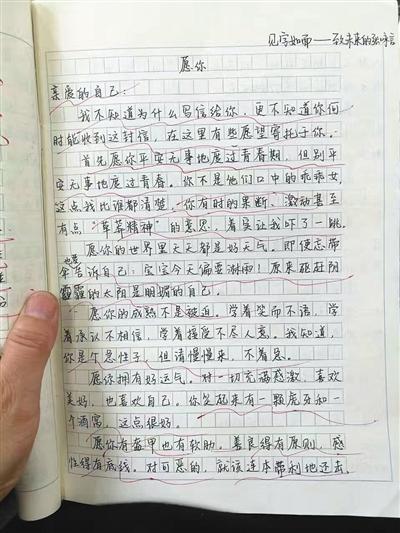 见字如面——致未来的张
愿你
亲爱的自己：
我不知道为什么写信给你，更不知道你何
时能收到这封信，在这里有些愿望寄托于你。
首先愿你平安无事地度过青春期，但别平
安无事地度过青春。你不是他们口中的乖乖女，
这点我比谁都清楚。你有时的果断、激动甚至
有点“草莽精神”的意思，着实让我吓了一跳。
愿你的世界里天天都是好天气。即使忘带
伞也要告诉自己：宝宝今天偏要淋雨！原来驱赶阴
霾的太阳是明媚的自己。
愿你的成熟不是被迫。学着笑而不语，学
着承认不相信，学着接受不尽人意。我知道，
你是个急性子，但请慢慢来，不着急。
愿你拥有好运气。对一切充满感激，喜欢
美好，也喜欢自己。你笑起来有一颗虎牙和一
个酒窝，这点很好。
愿你有盔甲也有软肋。善良得有原则，感
性得有底线。对可恶的，就该连本带利地还击，